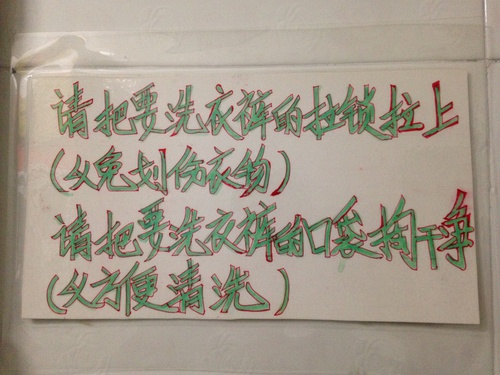 请把要洗衣裤的拉锁拉上
(以免划伤衣物)
请把要洗衣裤的口袋掏干净
(以方便清洗)